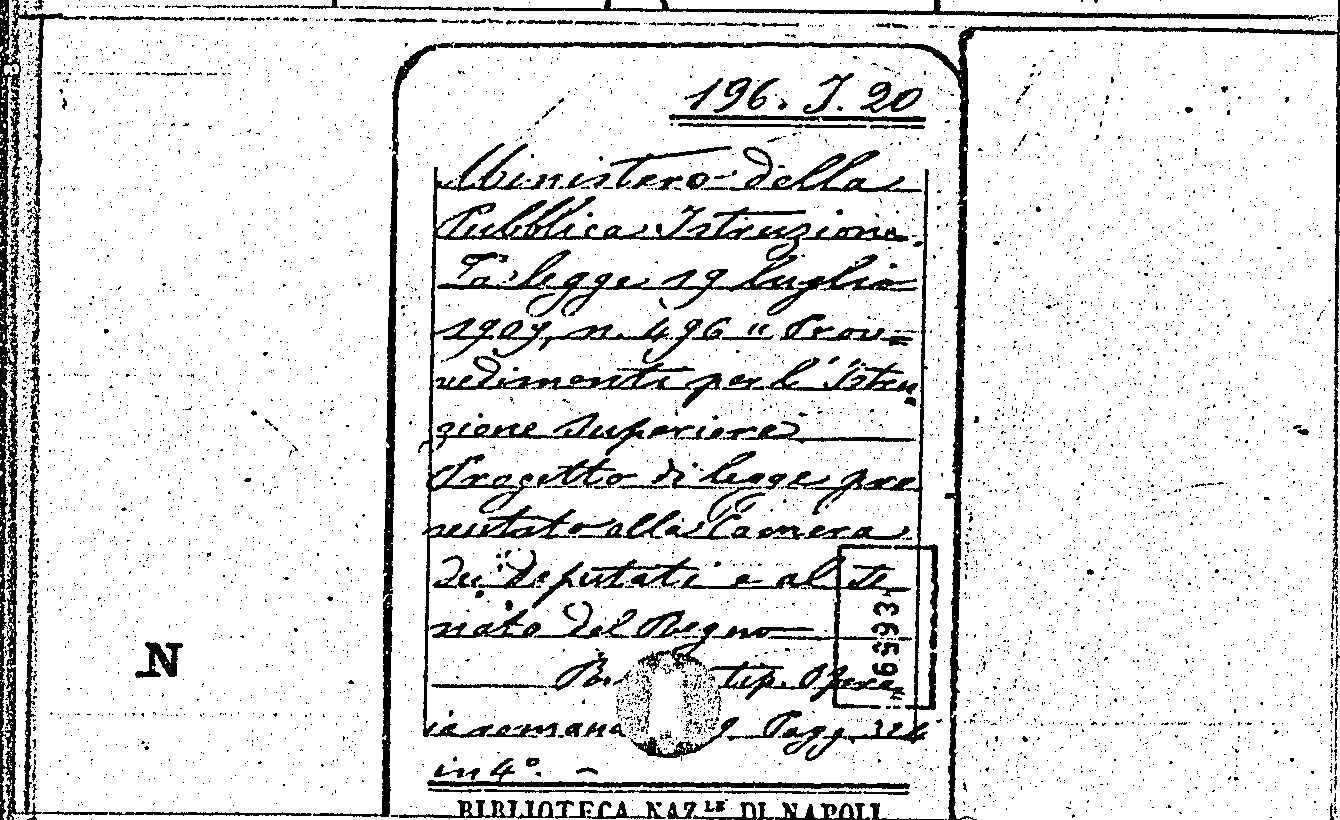 196. J. 20
Ministero della
Pubblica Istruzione.
La legge 19 luglio
1909, n. 496 "Prov=
vedimenti per l'Istru
zione superiore
Progetto di legge pre
sentato alla Camera
dei Deputati e al Se
nato del Regno
tip. Opera
ia romana Pagg. 324
in 4°. –
N
BIBLIOTECA NAZ.LE DI NAPOLI